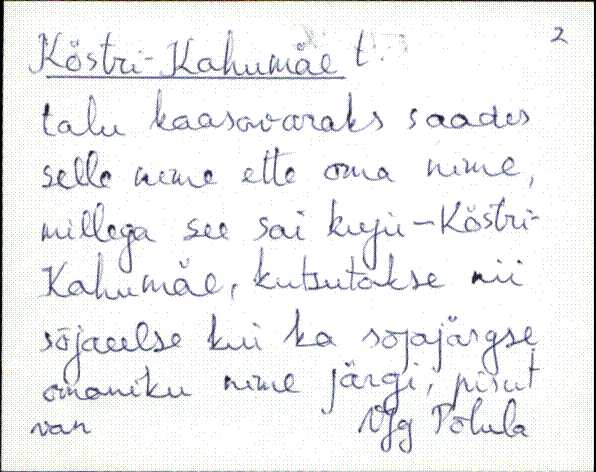 2
Köstri-Kahumäe t.
talu kaasavaraks saades
selle nime ette oma nime,
millega see sai kuju – Köstri-
Kahumäe, kutsutakse nii
sõjaeelse kui ka sõjajärgse
omaniku nime järgi; pisut
van VJg Põlula